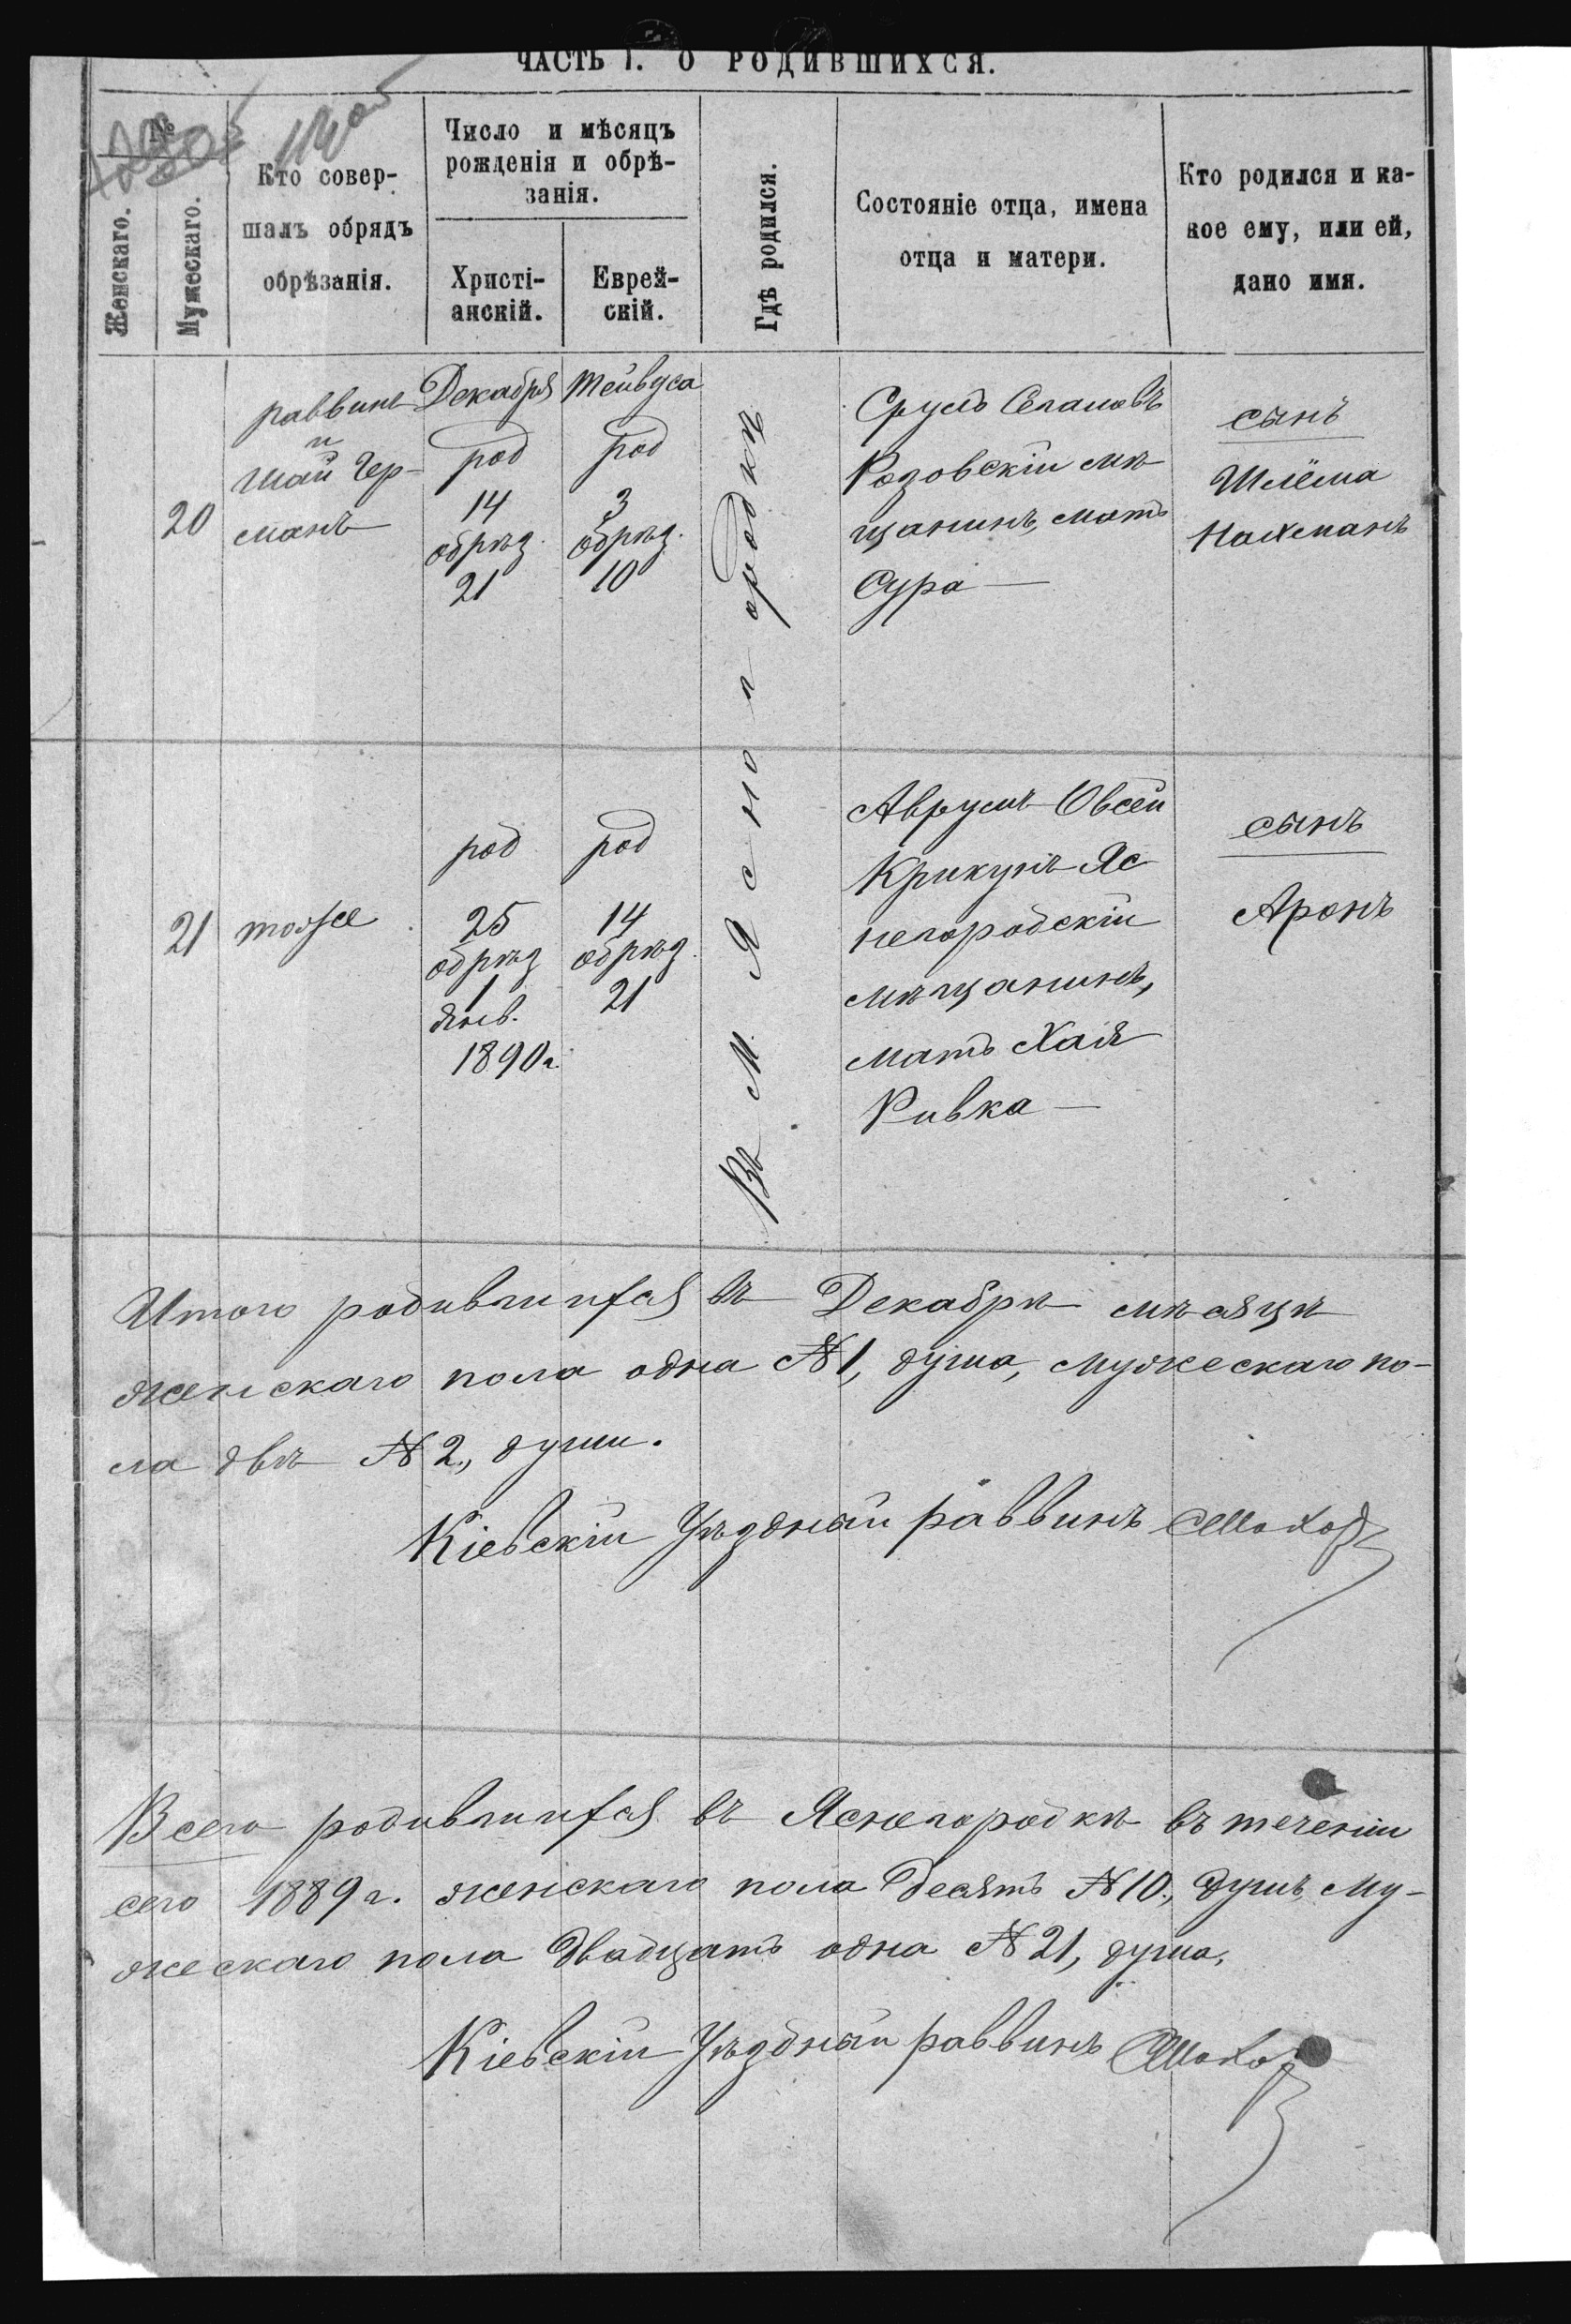 ЧАСТЬ I. О РОДИВШИХСЯ.
№
Женскаго.
Мужескаго.
Кто совер-
шалъ обрядъ
обрѣзанія.
Число и мѣсяцъ
рожденія и обрѣ-
занія.
Христі-
анскій.
Еврей-
скій.
Гдѣ родился.
Состояніе отца, имена
отца и матери.
Кто родился и ка-
кое ему, или ей,
дано имя.
20
раввинъ
и
Шай Чер-
манъ
Декабря
род
14
обрѣз.
21
Тейвуса
род
3
обрѣз.
10
Въ М. Ясногородкѣ
Сруль
Розовскій мѣ-
щанинъ, мать
Сура —
сынъ
Шлёма
Нахманъ
21
тоже
род
25
обрѣз
1
Янв.
1890 г.
род
14
обрѣз.
21
Аврумъ Овсей
Крикунъ Яс
негородскій
мѣщанинъ,
мать Хая
Ривка —
сынъ
Аронъ
Итого родившихся въ Декабрѣ мѣсяцѣ
женскаго пола одна № 1, душа, мужескаго по-
ла двѣ № 2, души.
Кіевскій Уѣздный раввинъ
Всего родившихся въ Ясногородкѣ въ теченіи
сего 1889 г. женскаго пола десять № 10, душъ, му-
жескаго пола двадцать одна № 21, душа,
Кіевскій Уѣздный раввинъ